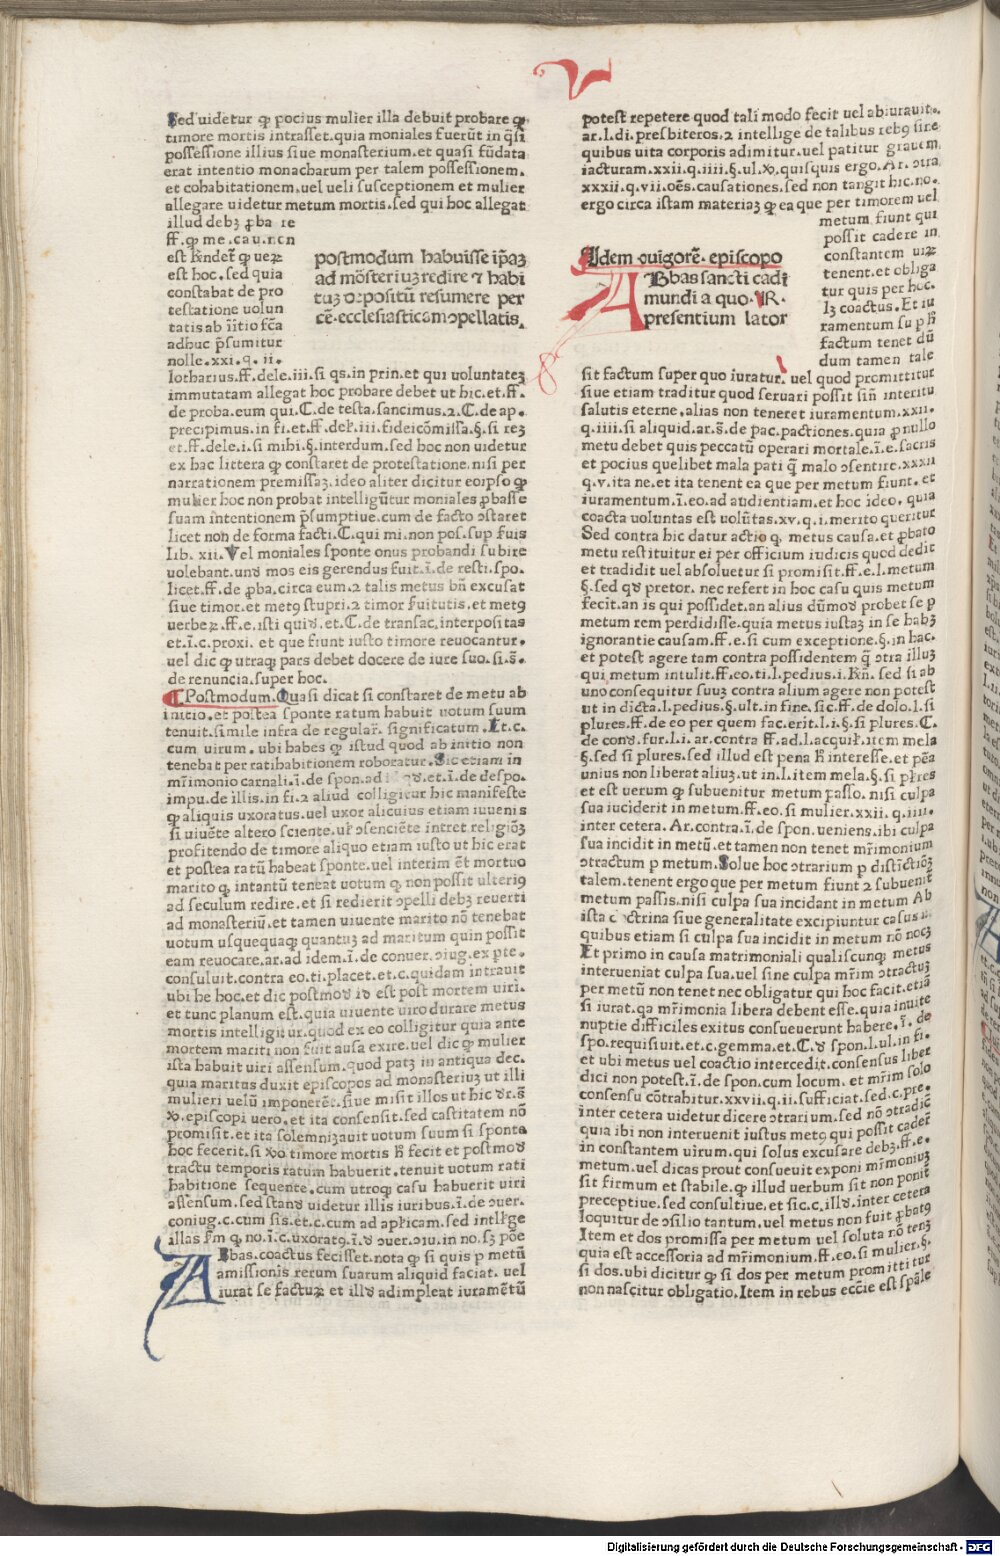 V
Sed uidetur ꝙ pocius mulier illa debuit probare ꝙ
timore mortis intrasset.quia moniales fuerūt in q̄si
possessione illius siue monasterium.et quasi fūdata
erat intentio monacharum per talem possessionem.
et cohabitationem.uel ueli susceptionem et mulier
allegare uidetur metum mortis.sed qui hoc allegat
illud debꝫ ꝓba re
ff.ꝙ me.cau.
est hoc.sed quia
constabat de pro
testatione uolun
tatis ab īitio fc̄a
adhuc p̄sumitur
nolle.xxi.q.ii.
postmodum habuisse ip̄aꝫ
ad mōsteriuꝫ redire ⁊ habi
tuꝫ depositū resumere per
cē.ecclesiasticam ꝯpellatis.
lotharius.ff.de le.iii.si qs.in prin.et qui uoluntateꝫ
immutatam allegat hoc probare debet ut hic.et.ff.
de proba.eum qui.C.de testa.sancimus.2.C.de ap.
precipimus.in fi.et.ff.de ł.iii.fideicōmissa.§.si reꝫ
et.ff.de le.i.si mihi.§.interdum.sed hoc non uidetur
ex hac littera ꝙ constaret de protestatione.nisi per
narrationem premissaꝫ.ideo aliter dicitur eoip̄o ꝙ
mulier hoc non probat intelligūtur moniales ꝓbasse
suam intentionem p̄sumptiue.cum de facto ꝯstaret
licet non de forma facti.C.qui mi.non pos.sup fuis
lib.xii.Vel moniales sponte onus probandi subire
uolebant.unď mos eis gerendus fuit.ī.de resti.spo.
licet.ff.de ꝓba.circa eum.2 talis metus bn̄ excusat
siue timor.et metꝰ stupri.2 timor ſuitutis.et metꝰ
uerbeꝝ.ff.e.isti quid.et.C.de transac.interpositas
et.ī.c.proxi.et que fiunt iusto timore reuocantur.
uel dic ꝙ utraqꝫ pars debet docere de iure suo.si.s̄.
de renuncia.super hoc.
Postmodum.Quasi dicat si constaret de metu ab
initio.et postea sponte ratum habuit uotum suum
tenuit.simile infra de regular̄.significatum.Et.c.
cum uirum.ubi habes ꝙ istud quod ab initio non
tenebat per ratihabitionem roboratur.Sic etiam in
mr̄imonio carnali.ī.de spon.ad id quod.et.ī.de despo.
impu.de illis.in fi.2 aliud colligitur hic manifeste
ꝙ aliquis uxoratus.uel uxor alicuius etiam iuuenis
si uiuēte altero sciente.uł ꝯsenciēte intret religiōꝫ
profitendo de timore aliquo etiam iusto ut hic erat
et postea ratū habeat sponte.uel interim ēt mortuo
marito ꝙ intantū teneat uotum ꝙ non possit ulteriꝰ
ad seculum redire.et si redierit ꝯpelli debꝫ reuerti
ad monasteriū.et tamen uiuente marito nō tenebat
uotum usquequaqꝫ quantuꝫ ad maritum quin possit
eam reuocare.ar.ad idem.ī.de conuer.ꝯiug.ex pte.
consuluit.contra eo.ti.placet.et.c.quidam intrauit
ubi he hoc.et dic postmoď iď est post mortem uiri.
et tunc planum est.quia uiuente uiro durare metus
mortis intelligitur.quod ex eo colligitur quia ante
mortem mariti non fuit ausa exire.uel dic ꝙ mulier
ista habuit uiri assensum.quod patꝫ in antiqua dec.
quia maritus duxit episcopos ad monasteriuꝫ ut illi
mulieri uelū imponerēt.siue misit illos ut hic dr̄.s̄
ꝟo.episcopi uero.et ita consensit.sed castitatem nō
promisit.et ita solemnizauit uotum suum si sponta
hoc fecerit.si ꝟo timore mortis h̄ fecit et postmoď
tractu temporis ratum habuerit.tenuit uotum rati
habitione sequente.cum utroqꝫ casu habuerit uiri
assensum.sed stanď uidetur illis iuribus.ī.de ꝯuer.
coniug.c.cum sis.et.c.cum ad apl̄icam.sed intll̄ige
illas fm̄ ꝙ no.ī.c.uxoratꝰ.ī.ď ꝯuer.ꝯiu.in no.sꝫ pōe
Abbas.coactus fecisset.nota ꝙ si quis p metū
amissionis rerum suarum aliquid faciat.uel
iurat se facturꝫ et illď adimpleat iuramētū
potest repetere quod tali modo fecit uel abiurauit.
ar.l.di.presbiteros.2 intellige de talibus rebꝰ sine
quibus uita corporis adimitur.uel patitur grauem
iacturam.xxii.q.iiii.§.ul.ꝟo.quisquis ergo.Ar.ꝯtra
xxxii.q.vii.oēs.causationes.sed non tangit hic.no.
ergo circa istam materiaꝫ ꝙ ea que per timorem uel
metum fiunt qui
possit cadere in
constantem uirꝫ
tenent.et obliga
tur quis per hoc.
lꝫ coactus.Et iu
ramentum su p h̄
factum tenet dū
dum tamen tale
Idem ꝯuigorē.episcopo
ABbas sancti cadi
mundi a quo.℟.
presentium lator
sit factum super quo iuratur.uel quod promittitur
siue etiam traditur quod seruari possit sin̄ interitu
salutis eterne.alias non teneret iuramentum.xxii.
q.iiii.si aliquid.ar.s̄.de pac.pactiones.quia ꝓ nullo
metu debet quis peccatū operari mortale.ī.e.sacris
et pocius quelibet mala pati q̄ malo ꝯsentire.xxxii
q.v.ita ne.et ita tenent ea que per metum fiunt.et
iuramentum.ī.eo.ad audientiam.et hoc ideo.quia
coacta uoluntas est uolūtas.xv.q.i.merito queritur
Sed contra hic datur actio ꝙ metus causa.et ꝓbato
metu restituitur ei per officium iudicis quod dedit
et tradidit uel absoluetur si promisit.ff.e.l.metum
§.sed qď pretor.nec refert in hoc casu quis metum
fecit.an is qui possidet.an alius dūmoď probet se p
metum rem perdidisse.quia metus iustaꝫ in se habꝫ
ignorantie causam.ff.e.si cum exceptione.§.in hac.
et potest agere tam contra possidentem q̄ ꝯtra illuꝫ
qui metum intulit.ff.eo.ti.l.pedius.i.Rn̄.sed si ab
uno consequitur suuꝫ contra alium agere non potest
ut in dicta.l.pedius.§.ult.in fine.sic.ff.de dolo.l.si
plures.ff.de eo per quem fac.erit.l.i.§.si plures.C.
de conď.fur.l.i.ar.contra ff.ad.l.acquił.item mela
§.sed si plures.sed illud est pena h̄ interesse.et pēa
unius non liberat aliuꝫ.ut in.l.item mela.§.si pl̄res
et est uerum ꝙ subuenitur metum passo.nisi culpa
sua inciderit in metum.ff.eo.si mulier.xxii.q.iiii.
inter cetera.Ar.contra.ī.de spon.ueniens.ibi culpa
sua incidit in metū.et tamen non tenet mr̄imonium
ꝯtractum p metum.Solue hoc ꝯtrarium p distictiōꝫ
talem.tenent ergo que per metum fiunt 2 subuenit̄
metum passis.nisi culpa sua incidant in metum Ab
ista doctrina siue generalitate excipiuntur casus in
quibus etiam si culpa sua incidit in metum nō nocꝫ
Et primo in causa matrimoniali qualiscunqꝫ metus
interueniat culpa sua.uel sine culpa mr̄im ꝯtractuꝫ
per metū non tenet nec obligatur qui hoc facit.etiā
si iurat.qa mr̄imonia libera debent esse.quia inuite
nuptie difficiles exitus consueuerunt habere.ī.de
spo.requisiuit.et c.gemma.et.C.ď spon.l.ul.in fi.
et ubi metus uel coactio intercedit.consensus liber
dici non potest.ī.de spon.cum locum.et mr̄im solo
consensu cōtrahitur.xxvii.q.ii.sufficiat.sed.c.pre.
inter cetera uidetur dicere ꝯtrarium.sed nō ꝯtradic̄
quia ibi non interuenit iustus metꝰ qui possit cader̄
in constantem uirum.qui solus excusare debꝫ.ff.e.
metum.uel dicas prout consueuit exponi mr̄imoniuꝫ
sit firmum et stabile.ꝙ illud uerbum sit non ponit̄
preceptiue.sed consultiue.et sic.c.illď.inter cetera
loquitur de ꝯsilio tantum.uel metus non fuit ꝓbatꝰ
Item et dos promissa per metum uel soluta nō tenꝫ
quia est accessoria ad mr̄imonium.ff.eo.si mulier.§.
si dos.ubi dicitur ꝙ si dos per metum promittitur
non nascitur obligatio.Item in rebus ecc̄ie est sp̄ale
Digitalisierung gefördert durch die Deutsche Forschungsgemeinschaft - DFG